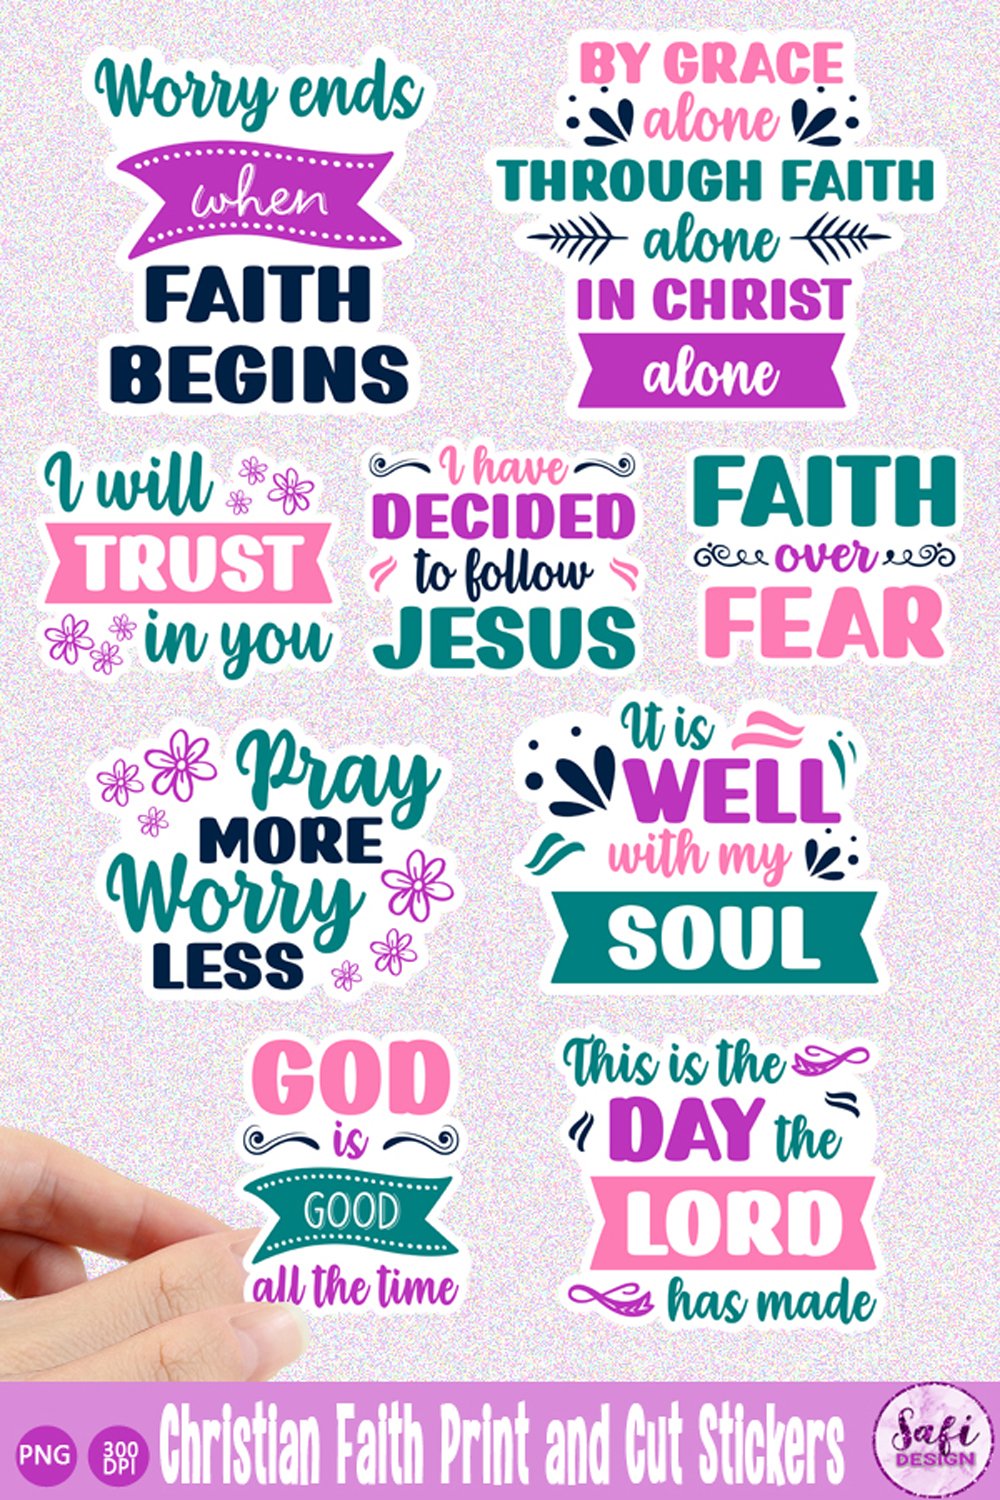 Worry ends
when
FAITH
BEGINS
BY GRACE
alone
THROUGH FAITH
alone
IN CHRIST
alone
I will
TRUST
in you
I have
DECIDED
to follow
JESUS
FAITH
over
FEAR
Pray
MORE
Worry
LESS
It is
WELL
with my
SOUL
GOD
is
GOOD
all the time
This is the
DAY the
LORD
has made
PNG
300
DPI
Christian Faith Print and Cut Stickers
Safi
DESIGN